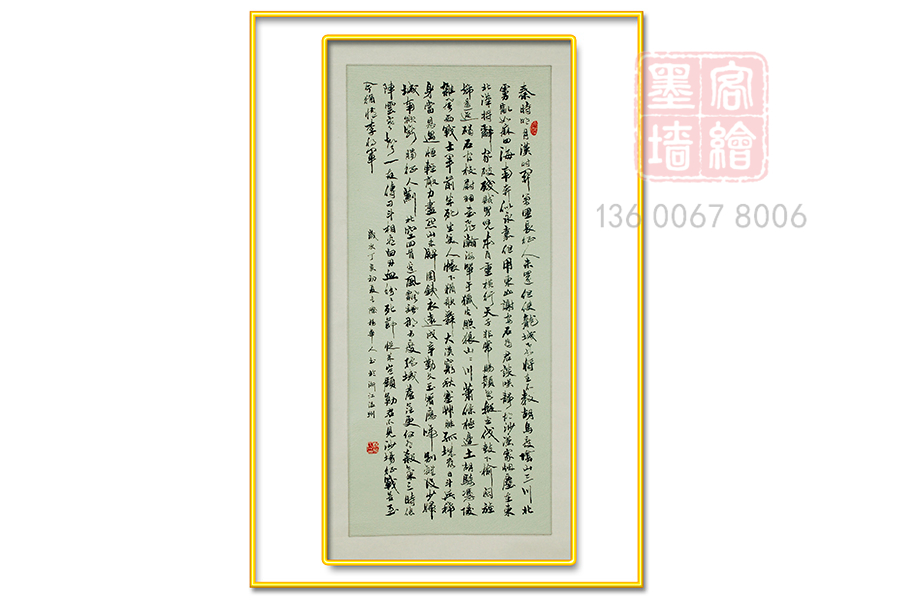 秦時明月漢時關萬里長征人未還但使龍城飛將在不教胡馬度陰山三川北
虜亂如麻四海南奔似永嘉但用東山謝安石為君談笑靜胡沙漢家煙塵在東
北漢將辭家破殘賊男兒本自重橫行天子非常賜顏色摐金伐鼓下榆關旌
旆逶迤碣石間校尉羽書飛瀚海單于獵火照狼山山川蕭條極邊土胡騎憑陵
雜風雨戰士軍前半死生美人帳下猶歌舞大漠窮秋塞草腓孤城落日斗兵稀
身當恩遇恒輕敵力盡關山未解圍鐵衣遠戍辛勤久玉箸應啼別離後少婦
城南欲斷腸征人薊北空回首邊風飄飖那可度絕域蒼茫更何有殺氣三時作
陣雲寒聲一夜傳刁斗相看白刃血紛紛死節從來豈顧勛君不見沙場征戰苦至
今猶憶李將軍
歲次丁亥初夏之際楊華人書於浙江溫州
墨客
墙繪
136 0067 8006